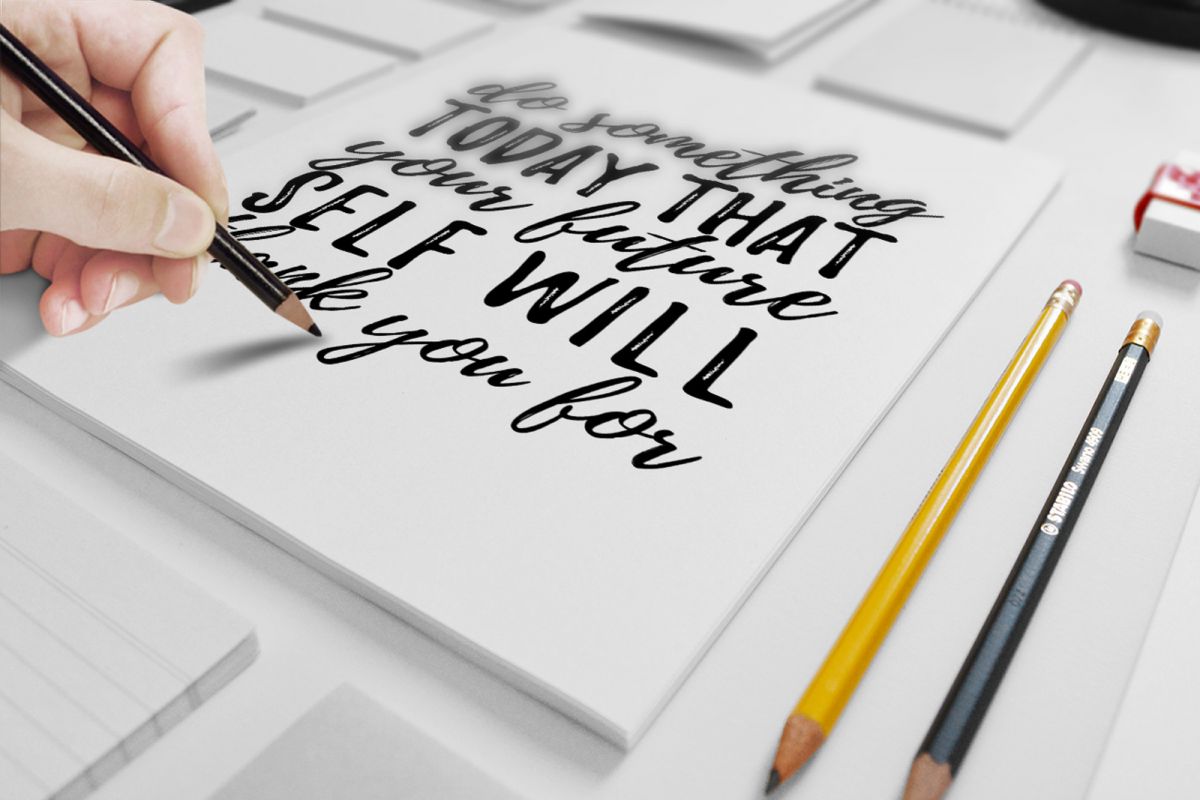 do something
TODAY THAT
your future
SELF WILL
thank you for
STABILO Swano 4906
HB